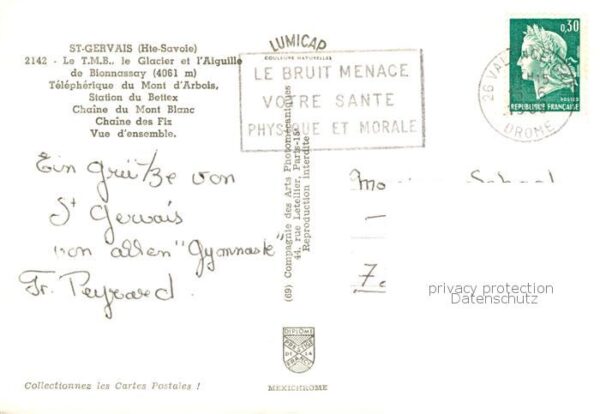 ST-GERVAIS (Hte-Savoie)
2142 - Le T.M.B., le Glacier et l'Aiguille
de Bionnassay (4061 m)
Téléphérique du Mont d'Arbois,
Station du Bettex
Chaîne du Mont Blanc
Chaîne des Fiz
Vue d'ensemble.
LUMICAP
COULEURS NATURELLES
LE BRUIT MENACE
VOTRE SANTE
PHYSIQUE ET MORALE
0,30
REPUBLIQUE FRANÇAISE
POSTES
26 VAL
DROME
Ein Grüße von
St Gervais
von allen "Gymnaste"
Fr. Peyrard.
(69) Compagnie des Arts Photomécaniques
44, rue Letellier, Paris-15e
Reproduction interdite
privacy protection
Datenschutz
DIPLOME
PRESTIGE
DE LA
FRANCE
MEXICHROME
Collectionnez les Cartes Postales !